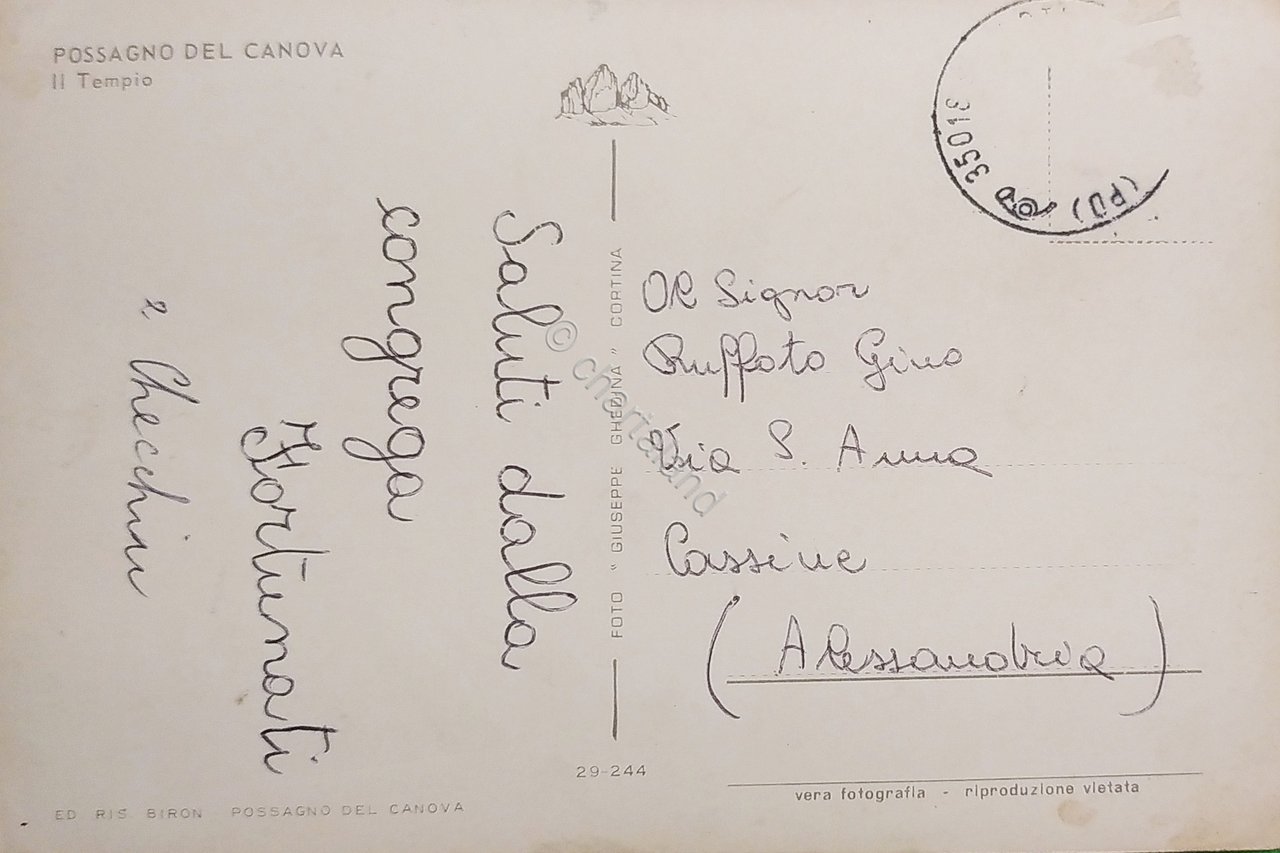 POSSAGNO DEL CANOVA
Il Tempio
Saluti dalla
congrega
Fortunati
e Checchin
FOTO "GIUSEPPE GHEDINA" CORTINA
35018
(PD)
Al Signor
Ruffato Gino
Via S. Anna
Cassine
(Alessandria)
29-244
vera fotografia - riproduzione vietata
ED RIS BIRON POSSAGNO DEL CANOVA
© chartaland